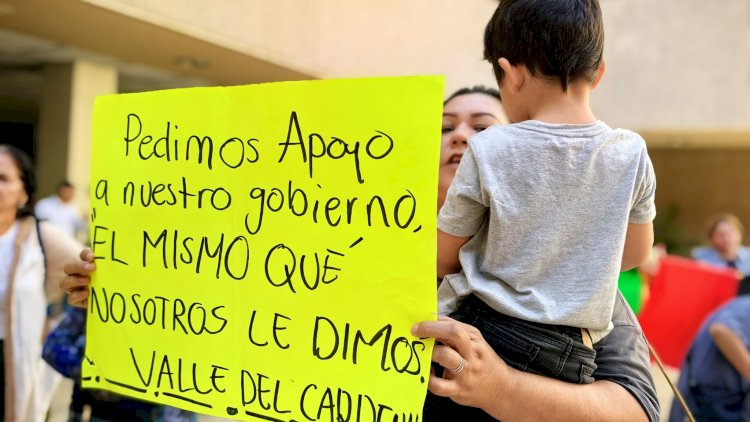 Pedimos Apoyo
a nuestro gobierno,
"EL MISMO QUÉ
NOSOTROS LE DIMOS.
VALLE DEL